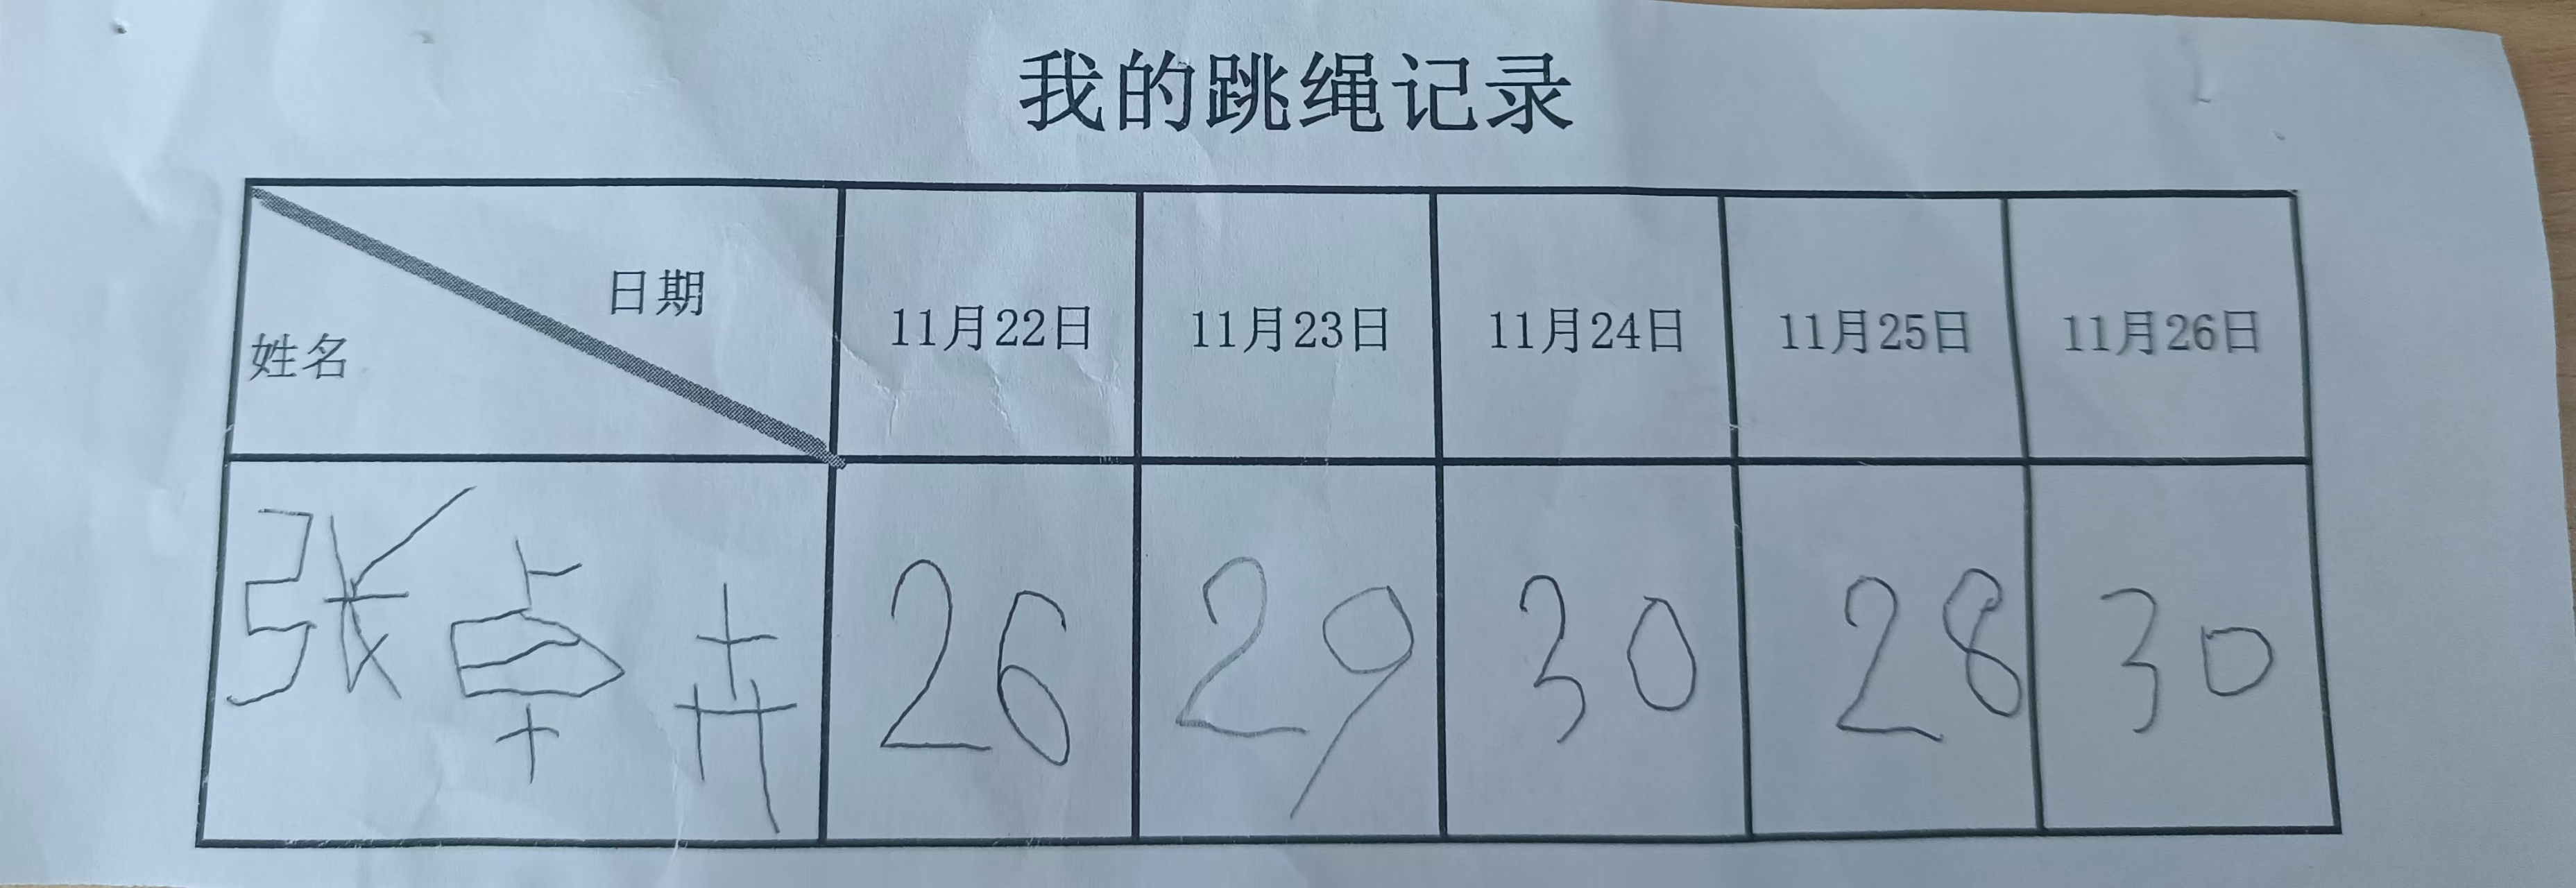 我的跳绳记录
日期 11月22日 11月23日 11月24日 11月25日 11月26日
姓名
张卓卉 26 29 30 28 30